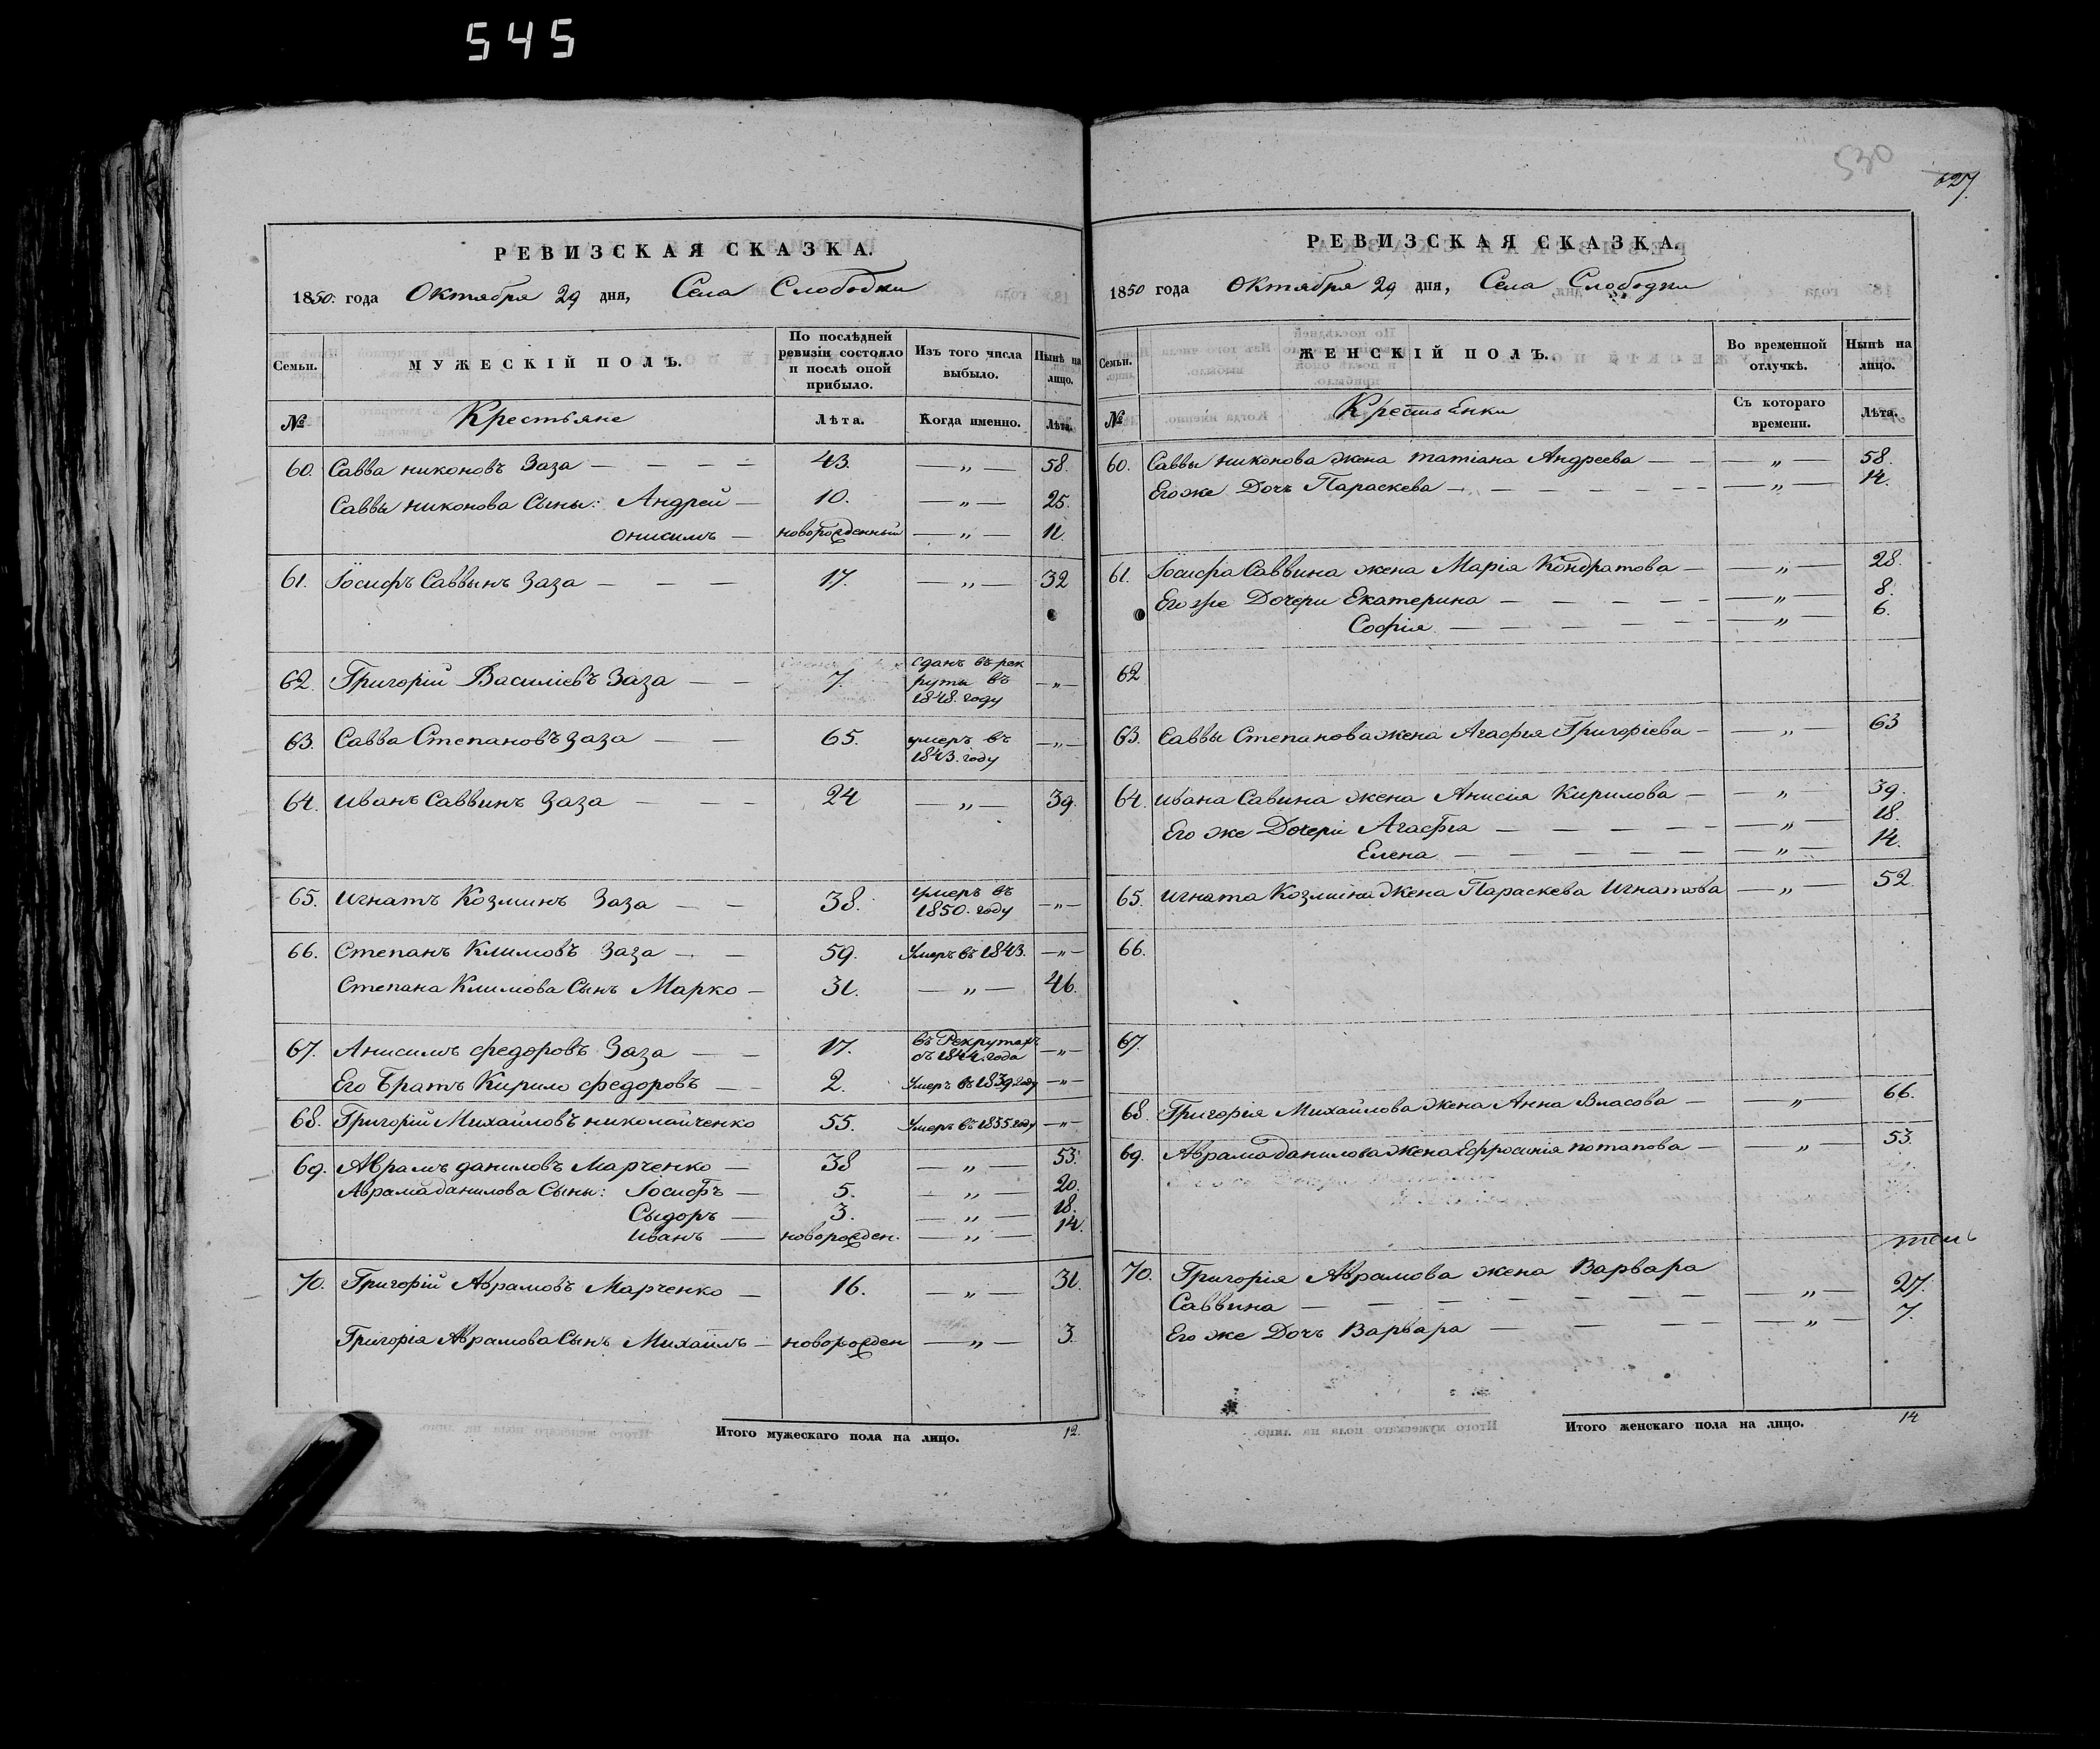 545
РЕВИЗСКАЯ СКАЗКА.
1850. года Октября 29 дня, Села Слободки
Семьи. МУЖЕСКІЙ ПОЛЪ. По послѣдней ревизіи состояло и послѣ оной прибыло. Изъ того числа выбыло. Нынѣ на лицо.
№ Крестьяне Лѣта. Когда именно. Лѣта.
60. Савва никоновъ Заза — — — — 43. — „ — 58.
Саввы никонова Сыны: Андрей — 10. — „ — 25.
Онисимъ — новорожденный — „ — 11.
61. Іосифъ Саввынъ Заза — — — 17. — „ — 32
62. Григорій Василіевъ Заза — — 7. сданъ въ рек
руты въ
1848. году — „ —
63. Савва Степановъ Заза — — 65. умеръ въ
1843. году — „ —
64. иванъ Саввинъ Заза — — — 24 — „ — 39.
65. игнатъ Козминъ Заза — — 38. умеръ въ
1850. году — „ —
66. Степанъ Климовъ Заза — — 59. умеръ въ 1843. — „ —
Степана Климова Сынъ Марко — 31. — „ — 46.
67. Анисимъ федоровъ Заза — — 17. въ Рекрутахъ
съ 1844. года — „ —
Его Братъ Кирило федоровъ — — 2. умеръ въ 1839 году — „ —
68. Григорій Михайловъ николайченко 55. умеръ въ 1835. году — „ —
69. Аврамъ даниловъ Марченко — 38 — „ — 53.
Аврама данилова Сыны: Іосифъ — 5. — „ — 20.
Сыдоръ — 3. — „ — 18.
иванъ — новорожден. — „ — 14.
70. Григорій Аврамовъ Марченко — 16. — „ — 31.
Григорія Аврамова Сынъ Михаилъ — новорожден — „ — 3.
Итого мужескаго пола на лицо. 12.
530
527.
РЕВИЗСКАЯ СКАЗКА.
1850 года Октября 29 дня, Села Слободки
Семьи. ЖЕНСКІЙ ПОЛЪ. Во временной отлучкѣ. Нынѣ на лицо.
№ Крестьянки Съ котораго времени. Лѣта.
60. Саввы никонова жена татіана Андреева — — „ — 58.
Его же Дочъ Параскева — — — — — — „ — 14.
61. Іосифа Саввина жена Марія Кондратова — — „ — 28.
Его же Дочери Екатерина — — — — — — „ — 8.
Софія — — — — — — „ — 6.
62
63. Саввы Степанова жена Агафія Григоріева — — „ — 63
64. ивана Савина жена Анисія Кирилова — — „ — 39.
Его же Дочери Агафія — — — — — — „ — 18.
Елена — — — — — — „ — 14.
65. игната Козмина жена Параскева игнатова — „ — 52
66.
67.
68. Григорія Михайлова жена Анна Власова — — „ — 66.
69. Аврама данилова жена Ефросинія потапова — — „ — 53.
70. Григорія Аврамова жена Варвара
Саввина — — — — — — — — „ — 27.
Его же Дочъ Варвара — — — — — „ — 7.
Итого женскаго пола на лицо. 14